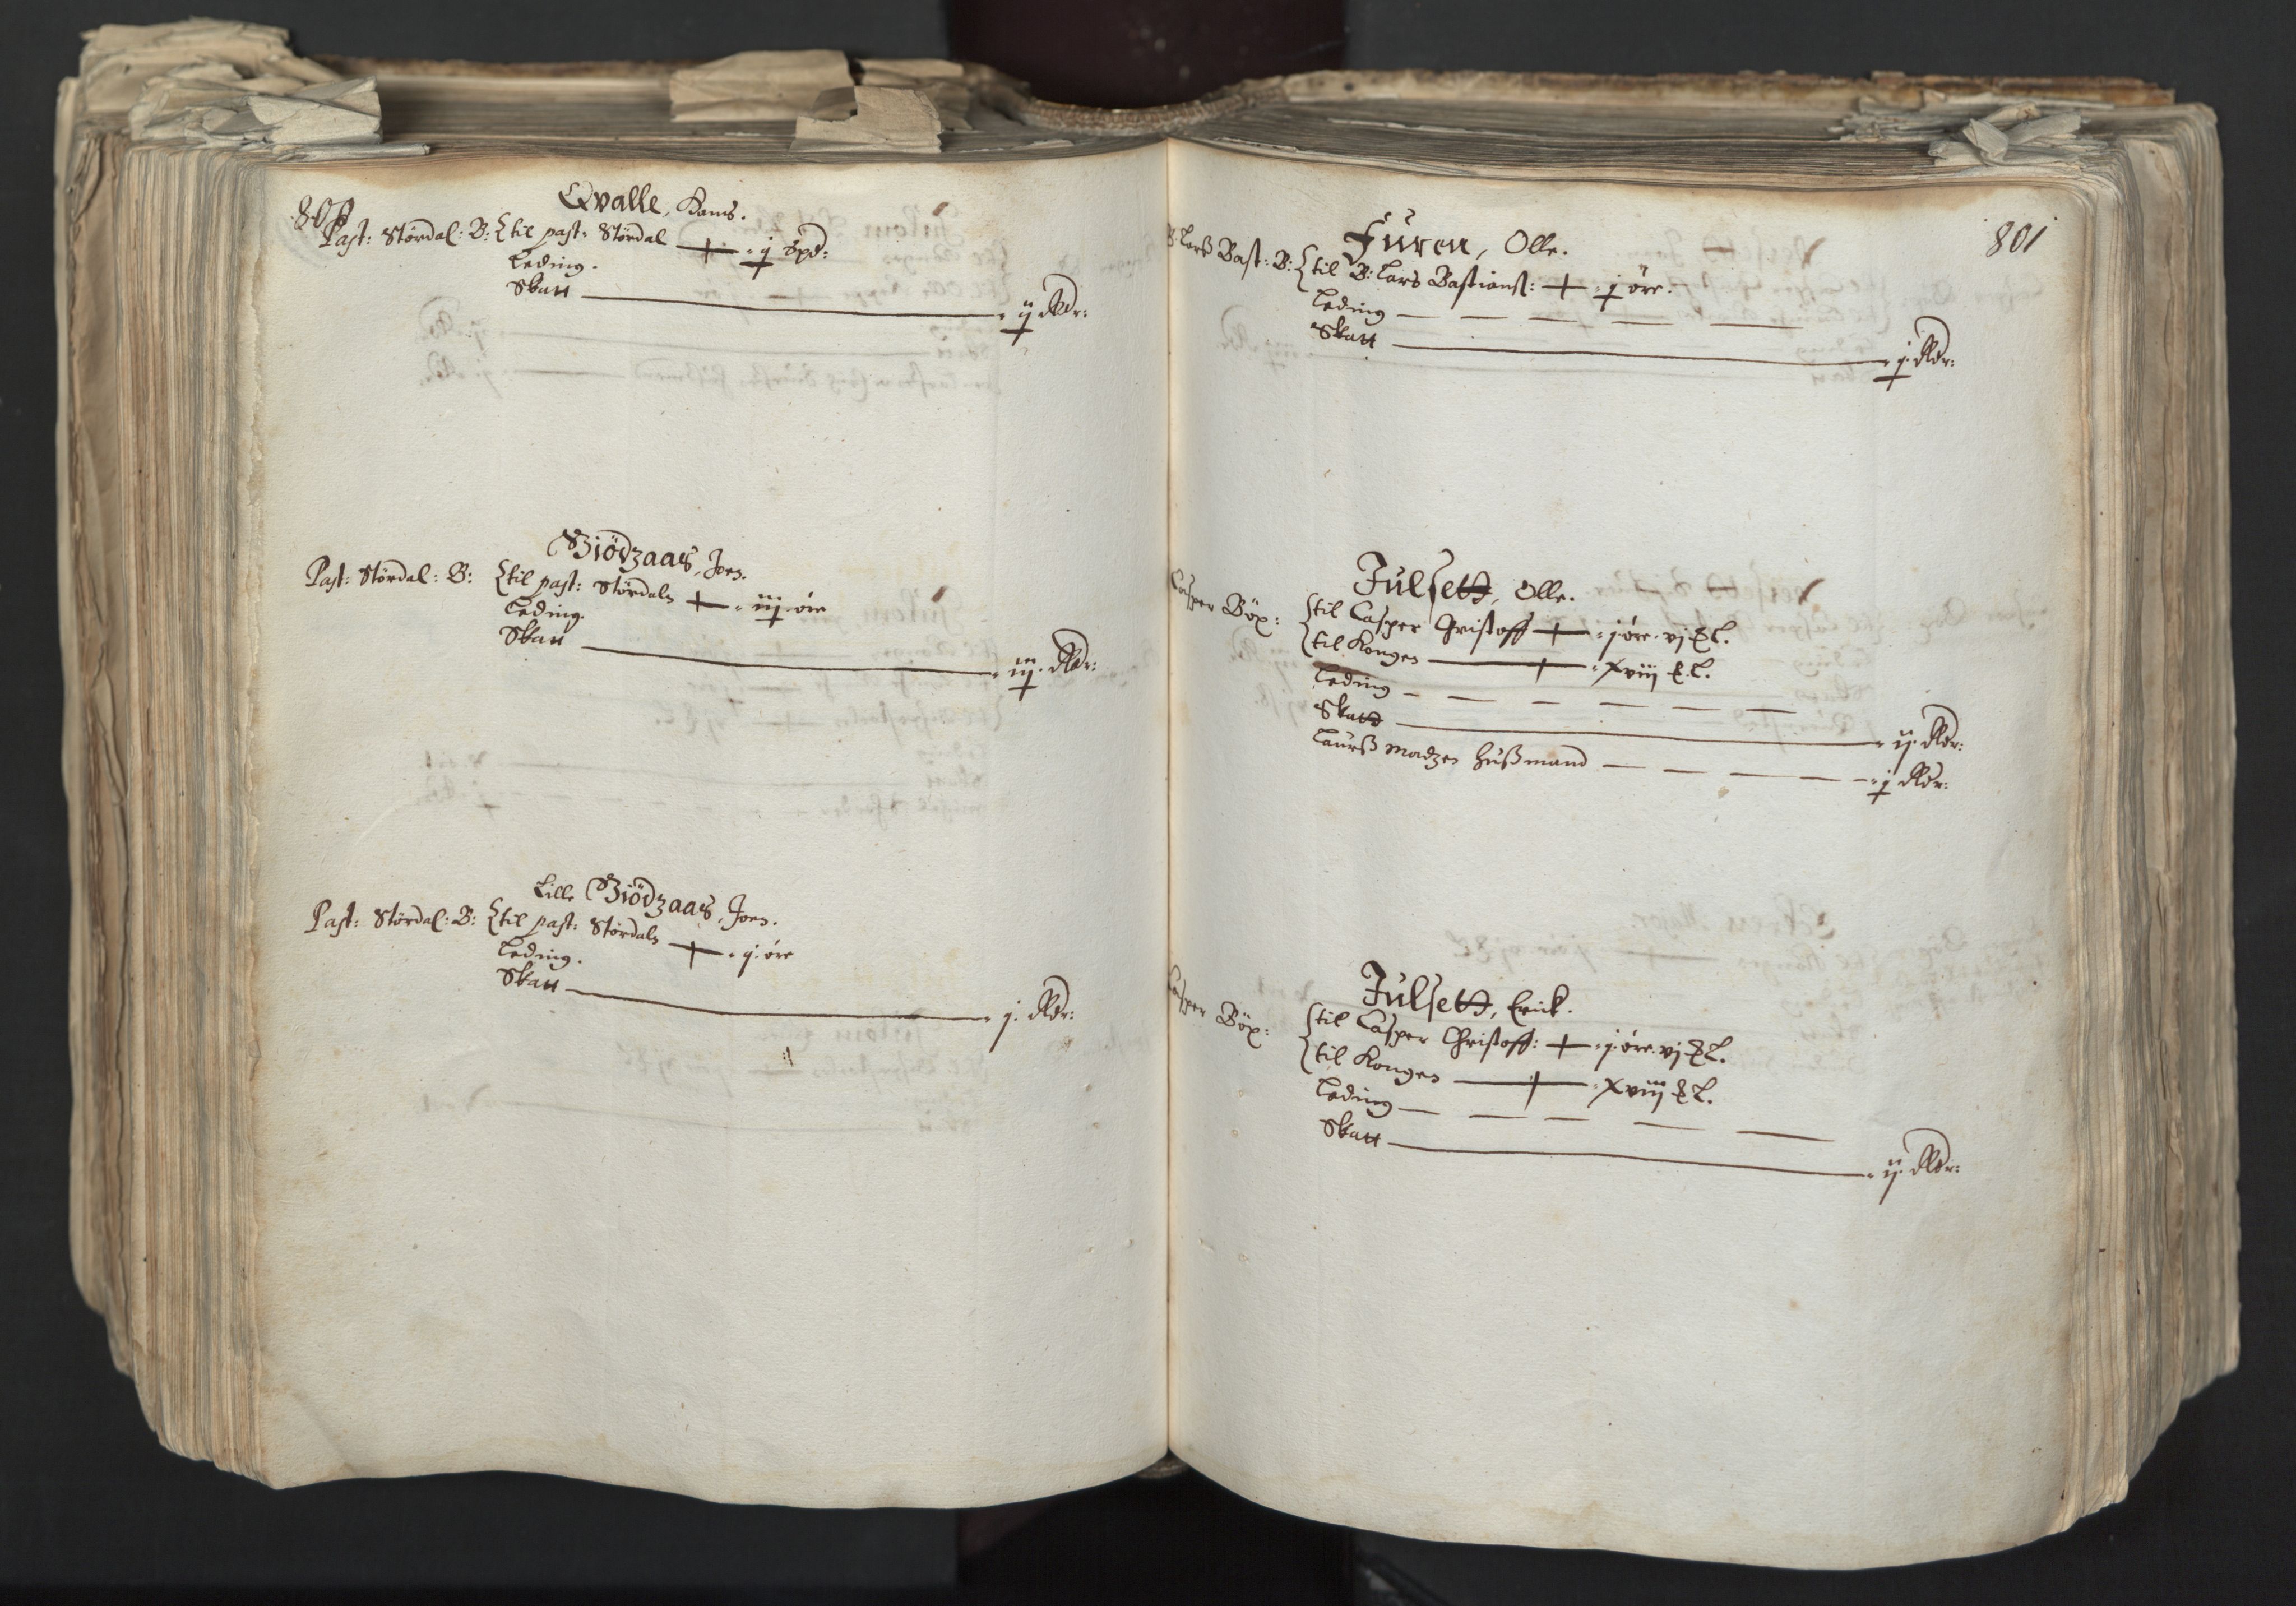 800
Qvalle, Hans.
Past: Størdal: B: til past: Størdal j spd:
Leding.
Skatt ij Rdr:
Biödzaas, Joen.
Past: Størdal: B: til past: Størdals iij øre
Leding.
Skatt iij. Rdr:
Lille Biödzaas, Joen.
Past: Størdal: B: til past: Størdals j. øre
Leding.
Skatt j. Rdr:
801
Furen, Olle.
B: Larß Bast: B: til B: Lars Bastianß: j øre.
Leding
Skatt j. Rdr:
Julsett, Olle.
Casper Böx: til Casper Christoff j øre. vj L.
til Kongen xviij L.
Leding
Skatt ij. Rdr:
Laurß Madzen Hußmand j Rdr:
Julsett, Erick.
Casper Böx: til Casper Christoff: j øre. vj L.
til Kongen xviij L.
Leding
Skatt ij. Rdr: